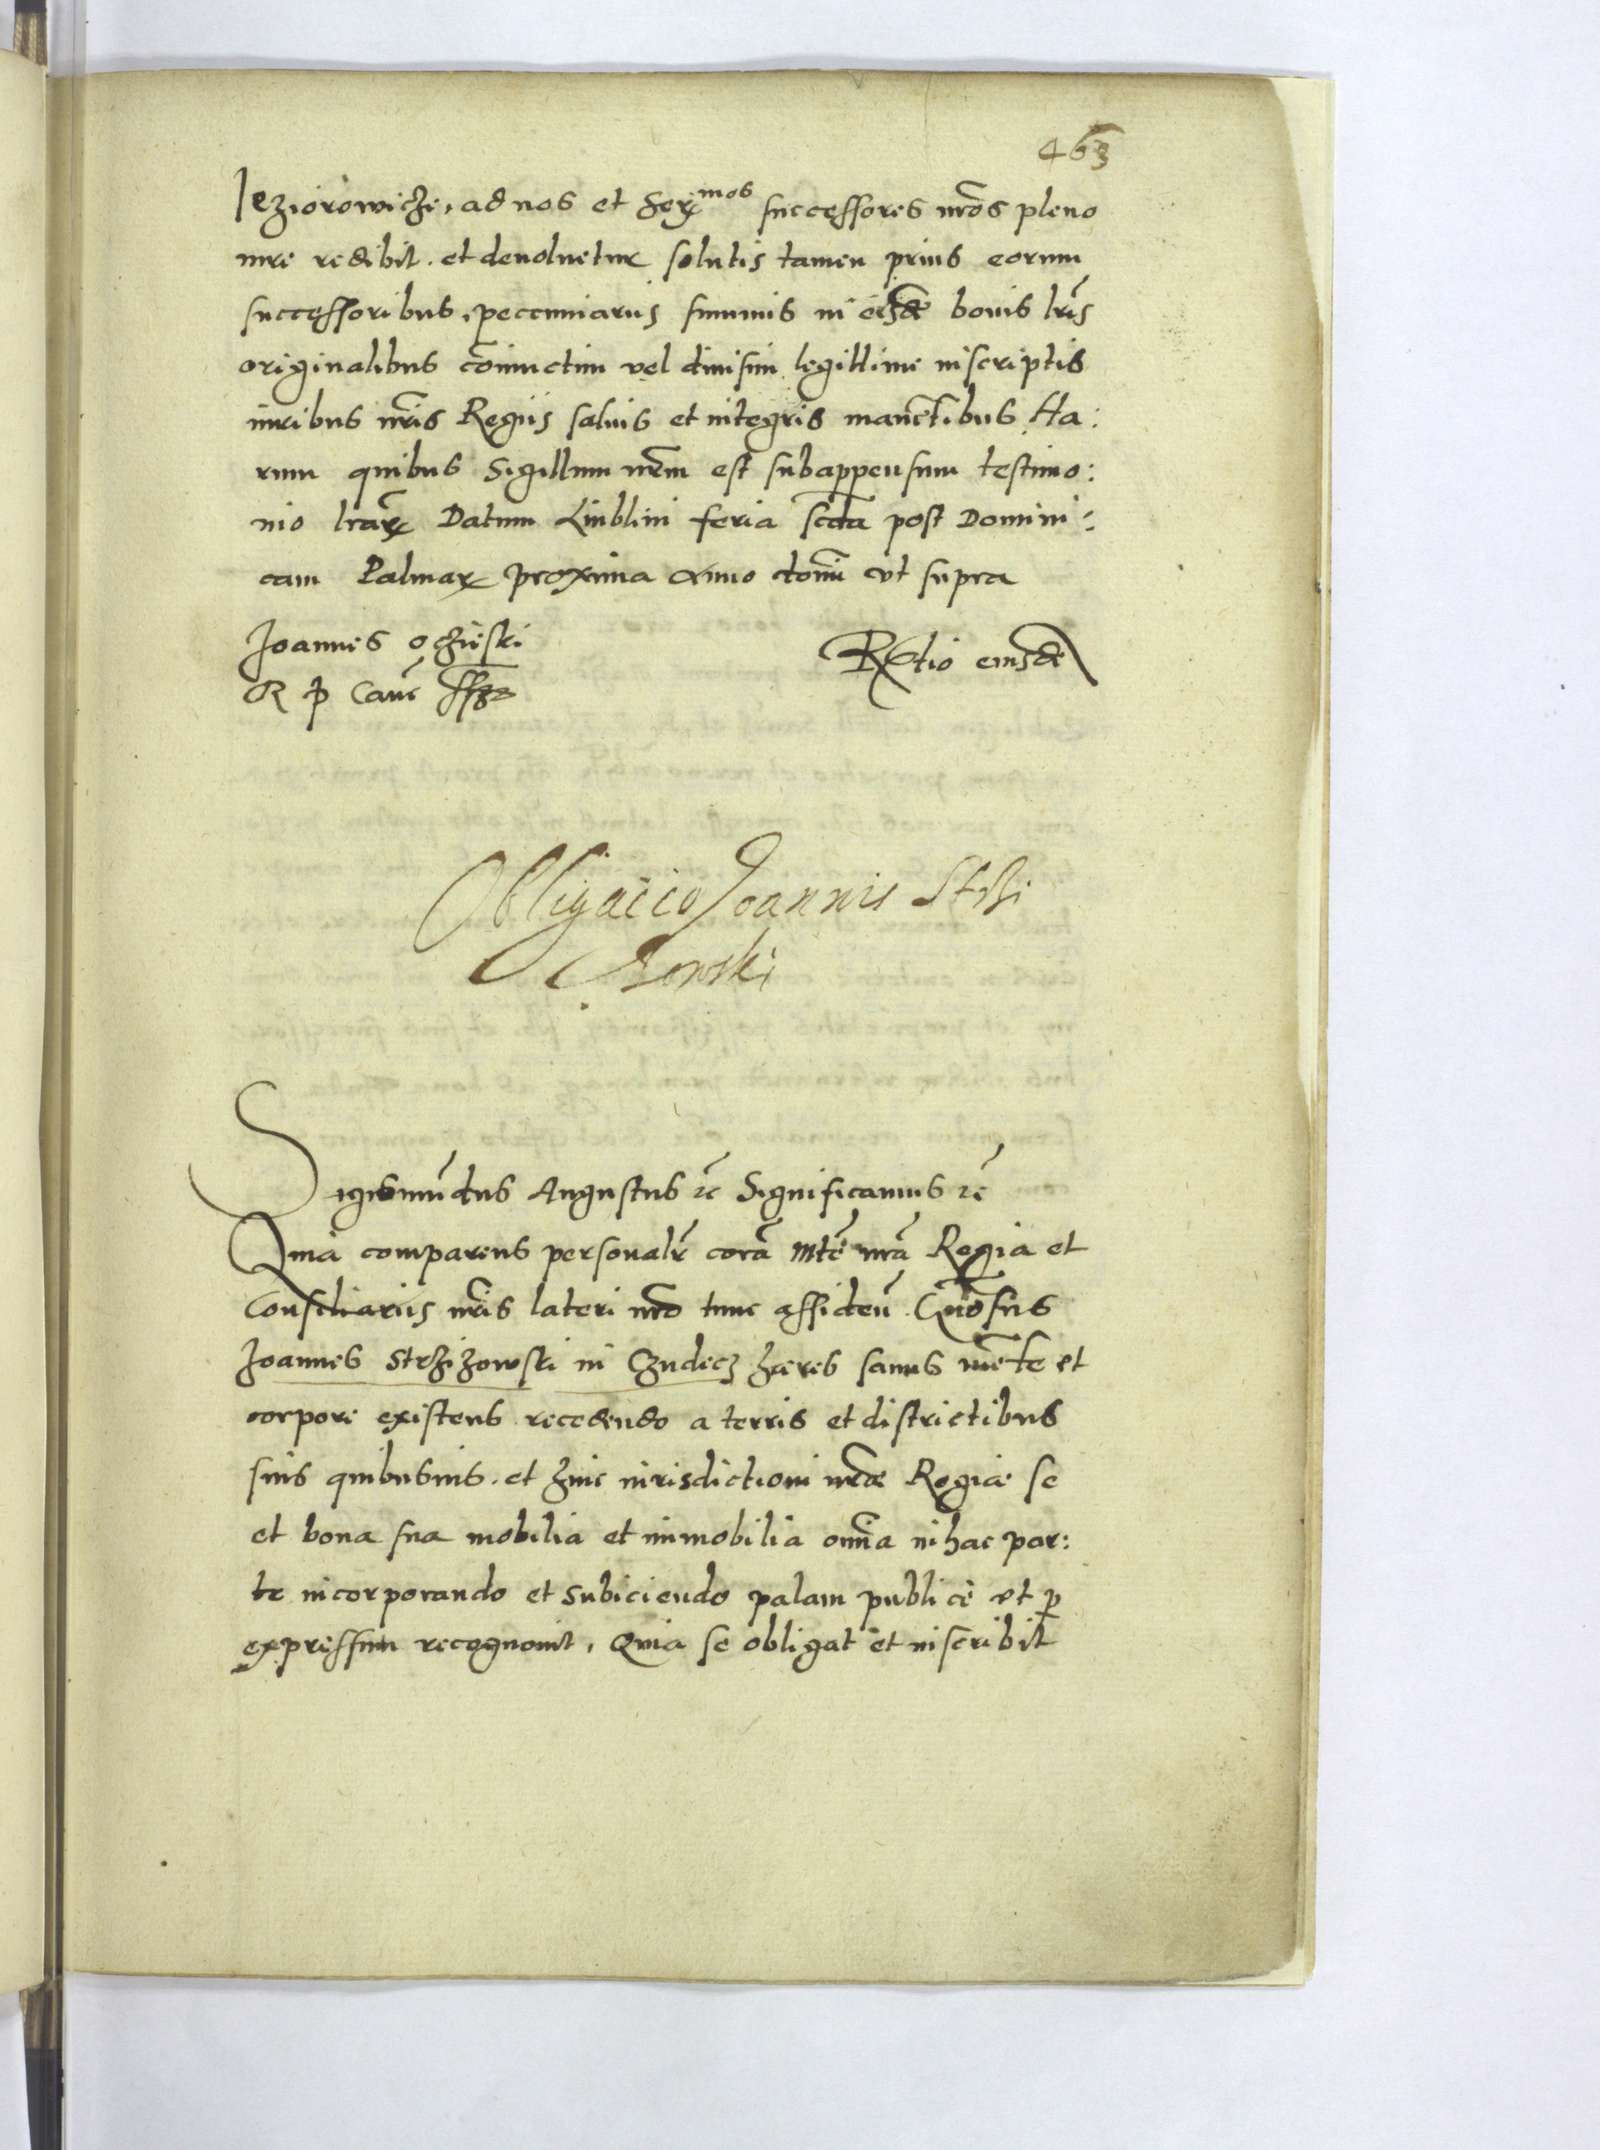 463
Jeziorowicze, ad nos et Serꝫmos successores nr̃os pleno
iure redibit. et deuoluetur solutis tamen prius eorum
successoribus, pecuniariis summis in eisdẽ bonis lr̃is
originalibus cõiunctim vel diuisim legittime inscriptis
iuribus nr̃is Regiis saluis et integris manẽtibus Ha:
rum quibus Sigillum nrm̃ est subappensum testimo:
nio lrãrꝫ Datum Lublini feria scd̃a post Domini:
cam Palmarꝫ proxima Anno dom̃i vt supra
Joannes Oczieski
R P Canc̃ ss
R̃tio eiusdẽ
Obligacio Joannis Strzi
zowski
Sigismũdus Augustus ꝛc̃ Significamus ꝛc̃
Quia comparens personalr̃ corã Mtẽ nrã Regia et
Consiliariis nr̃is lateri nrõ tunc assideñ. Gñosus
Joannes Strzizowski in Czudecz hæres sanus mẽte et
corpore existens recedendo a terris et districtibus
suis quibusuis. et huic iurisdictioni nr̃æ Regiæ se
et bona sua mobilia et immobilia om̃ia in hac par:
te incorporando et subiciendo palam publicè et ꝑ
expressum recognouit, Quia se obligat et inscribit